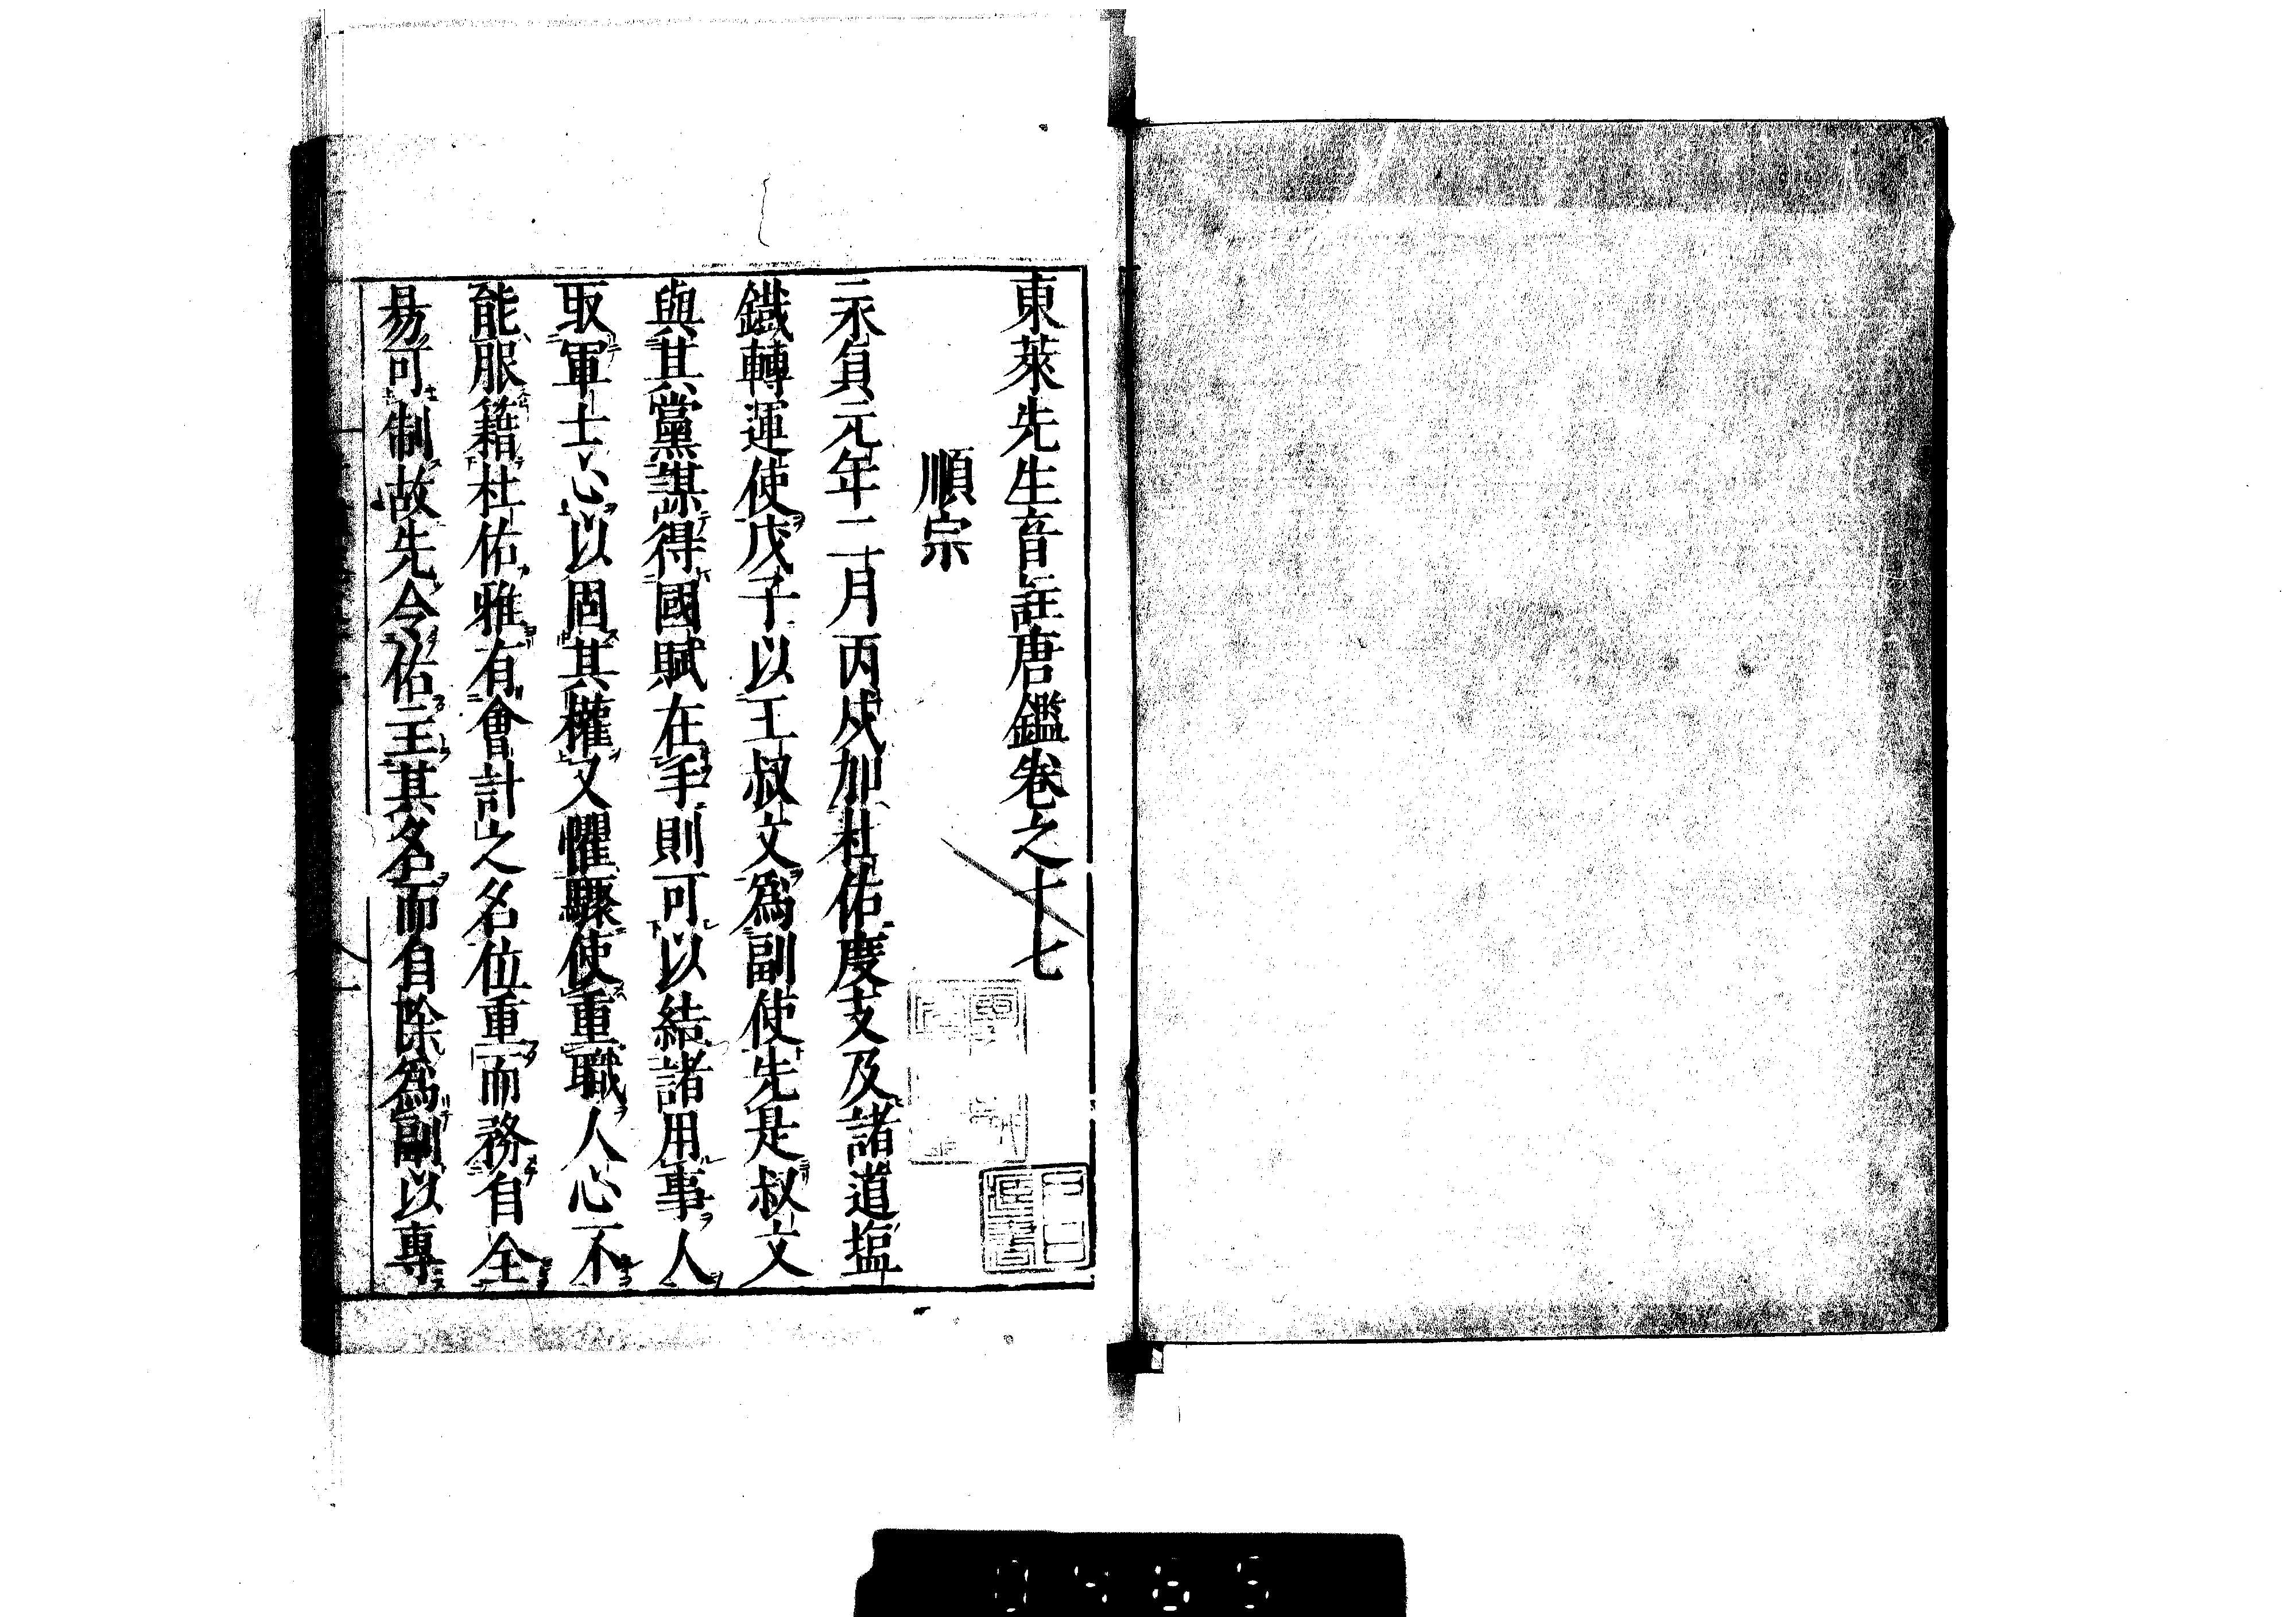 東萊先生音註唐鑑卷之十七
順宗
永貞元年二月丙戌加杜佑度支及諸道塩
鐵轉運使戊子以王叔文爲副使先是叔文
與其黨謀得國賦在手則可以結諸用事人
取軍士心以固其權又懼驟使重職人心不
能服籍杜佑雅有會計之名位重而務自全
易可制故先令佑主其名而自除爲副以專